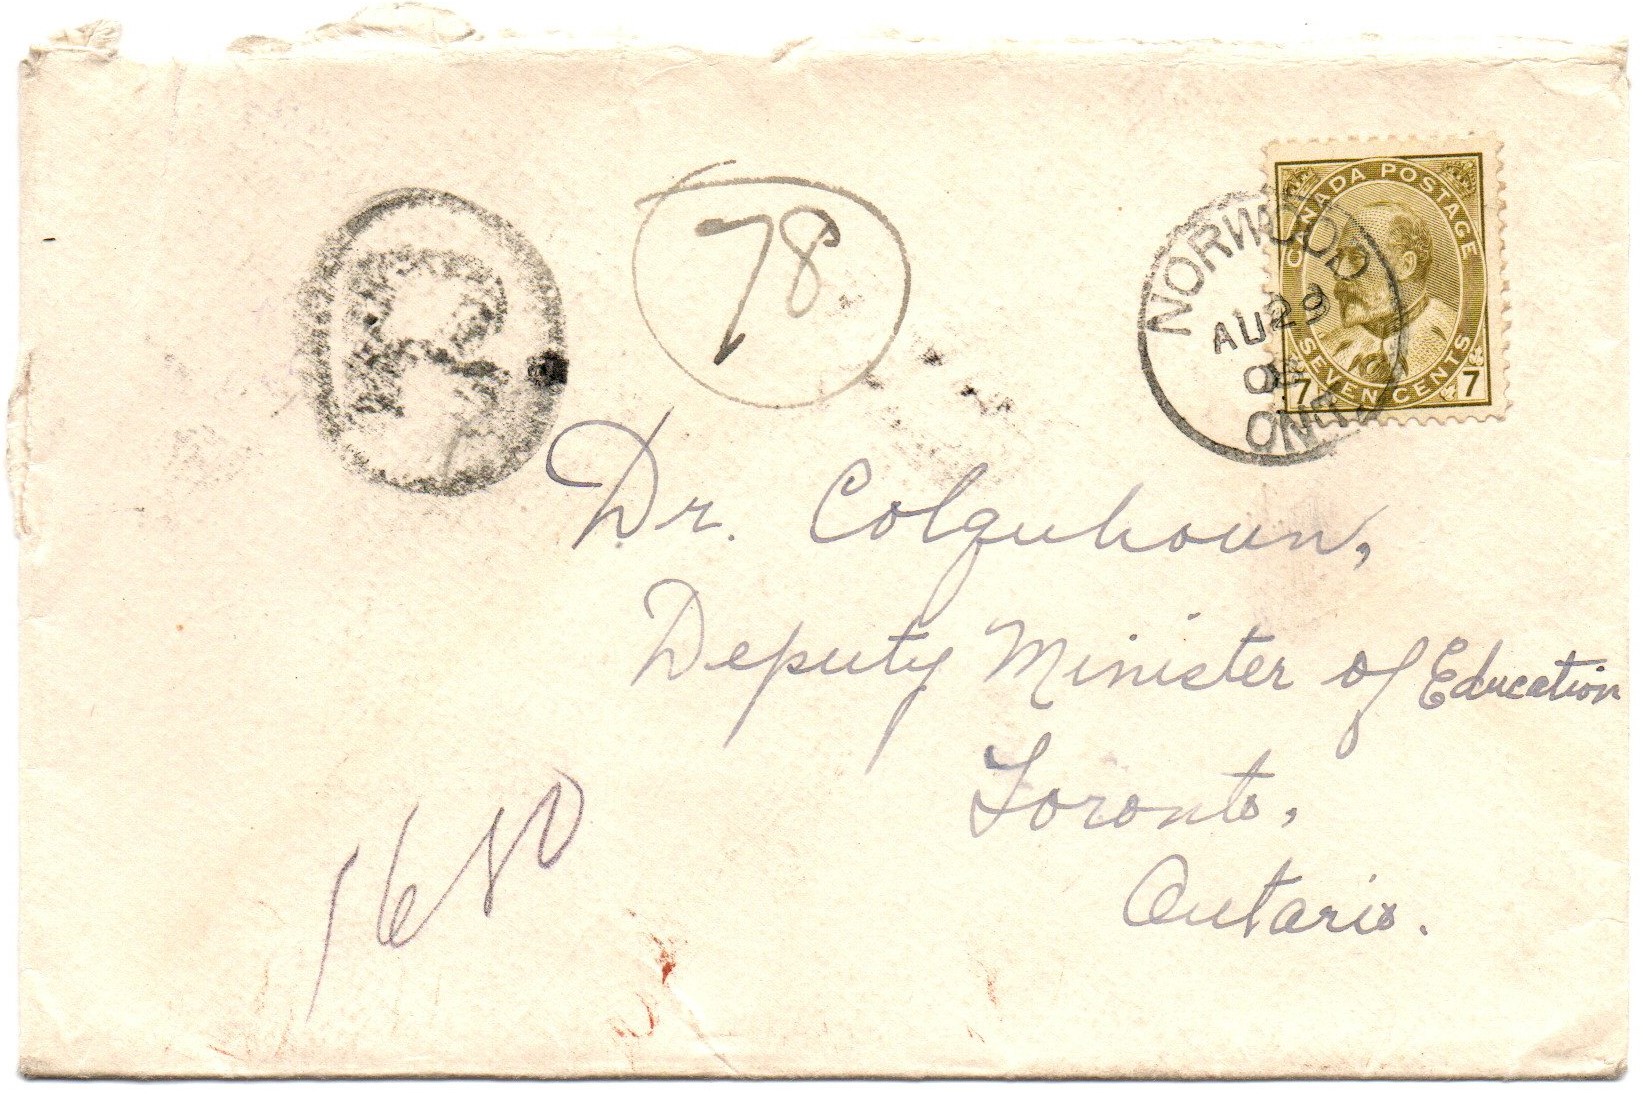 R
78
CANADA POSTAGE
SEVEN CENTS
7 7
NORWOOD
AU 29
ONT
Dr. Colquhoun,
Deputy Minister of Education
Toronto,
Ontario.
1680